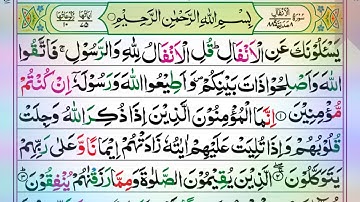 سورة الانفال بِسْمِ اللّٰهِ الرَّحْمٰنِ الرَّحِيْمِ اٰيَاتُهَا ٧٥ رُكُوْعَاتُهَا ١٠
يَسْـَٔلُوْنَكَ عَنِ الْاَنْفَالِ ؕ قُلِ الْاَنْفَالُ لِلّٰهِ وَالرَّسُوْلِ ۚ فَاتَّقُوا
اللّٰهَ وَاَصْلِحُوْا ذَاتَ بَيْنِكُمْ ۪ وَاَطِيْعُوا اللّٰهَ وَرَسُوْلَهٗۤ اِنْ كُنْتُمْ
مُّؤْمِنِيْنَ ۝١ اِنَّمَا الْمُؤْمِنُوْنَ الَّذِيْنَ اِذَا ذُكِرَ اللّٰهُ وَجِلَتْ
قُلُوْبُهُمْ وَاِذَا تُلِيَتْ عَلَيْهِمْ اٰيٰتُهٗ زَادَتْهُمْ اِيْمَانًا وَّعَلٰى رَبِّهِمْ
يَتَوَكَّلُوْنَ ۝٢ الَّذِيْنَ يُقِيْمُوْنَ الصَّلٰوةَ وَمِمَّا رَزَقْنٰهُمْ يُنْفِقُوْنَ ۝٣